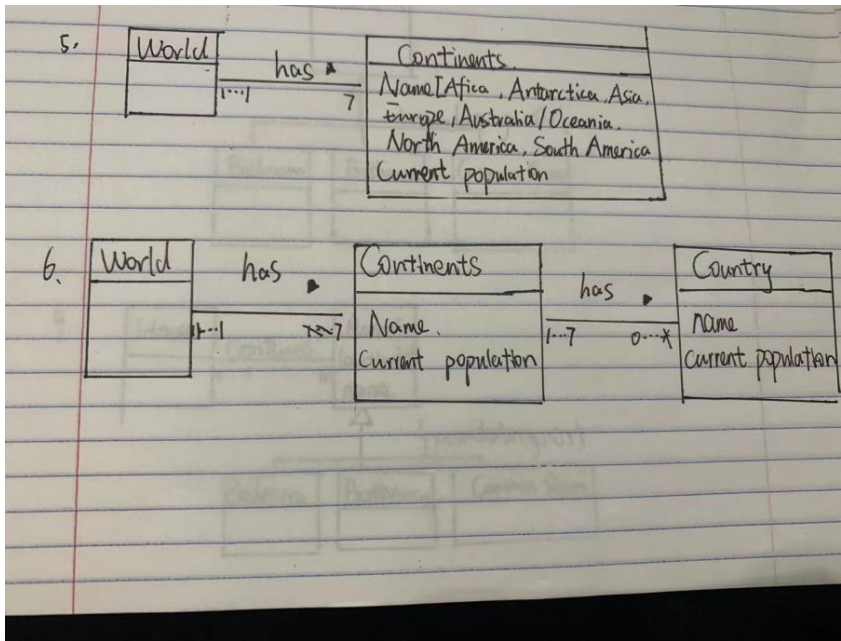 5.
World
has
1...1
7
Continents
Name[Afica, Antarctica, Asia,
Europe, Australia/Oceania.
North America, South America
Current population
6.
World
has
1...1
7
Continents
Name.
Current population
has
1...7
0...*
Country
name
Current population